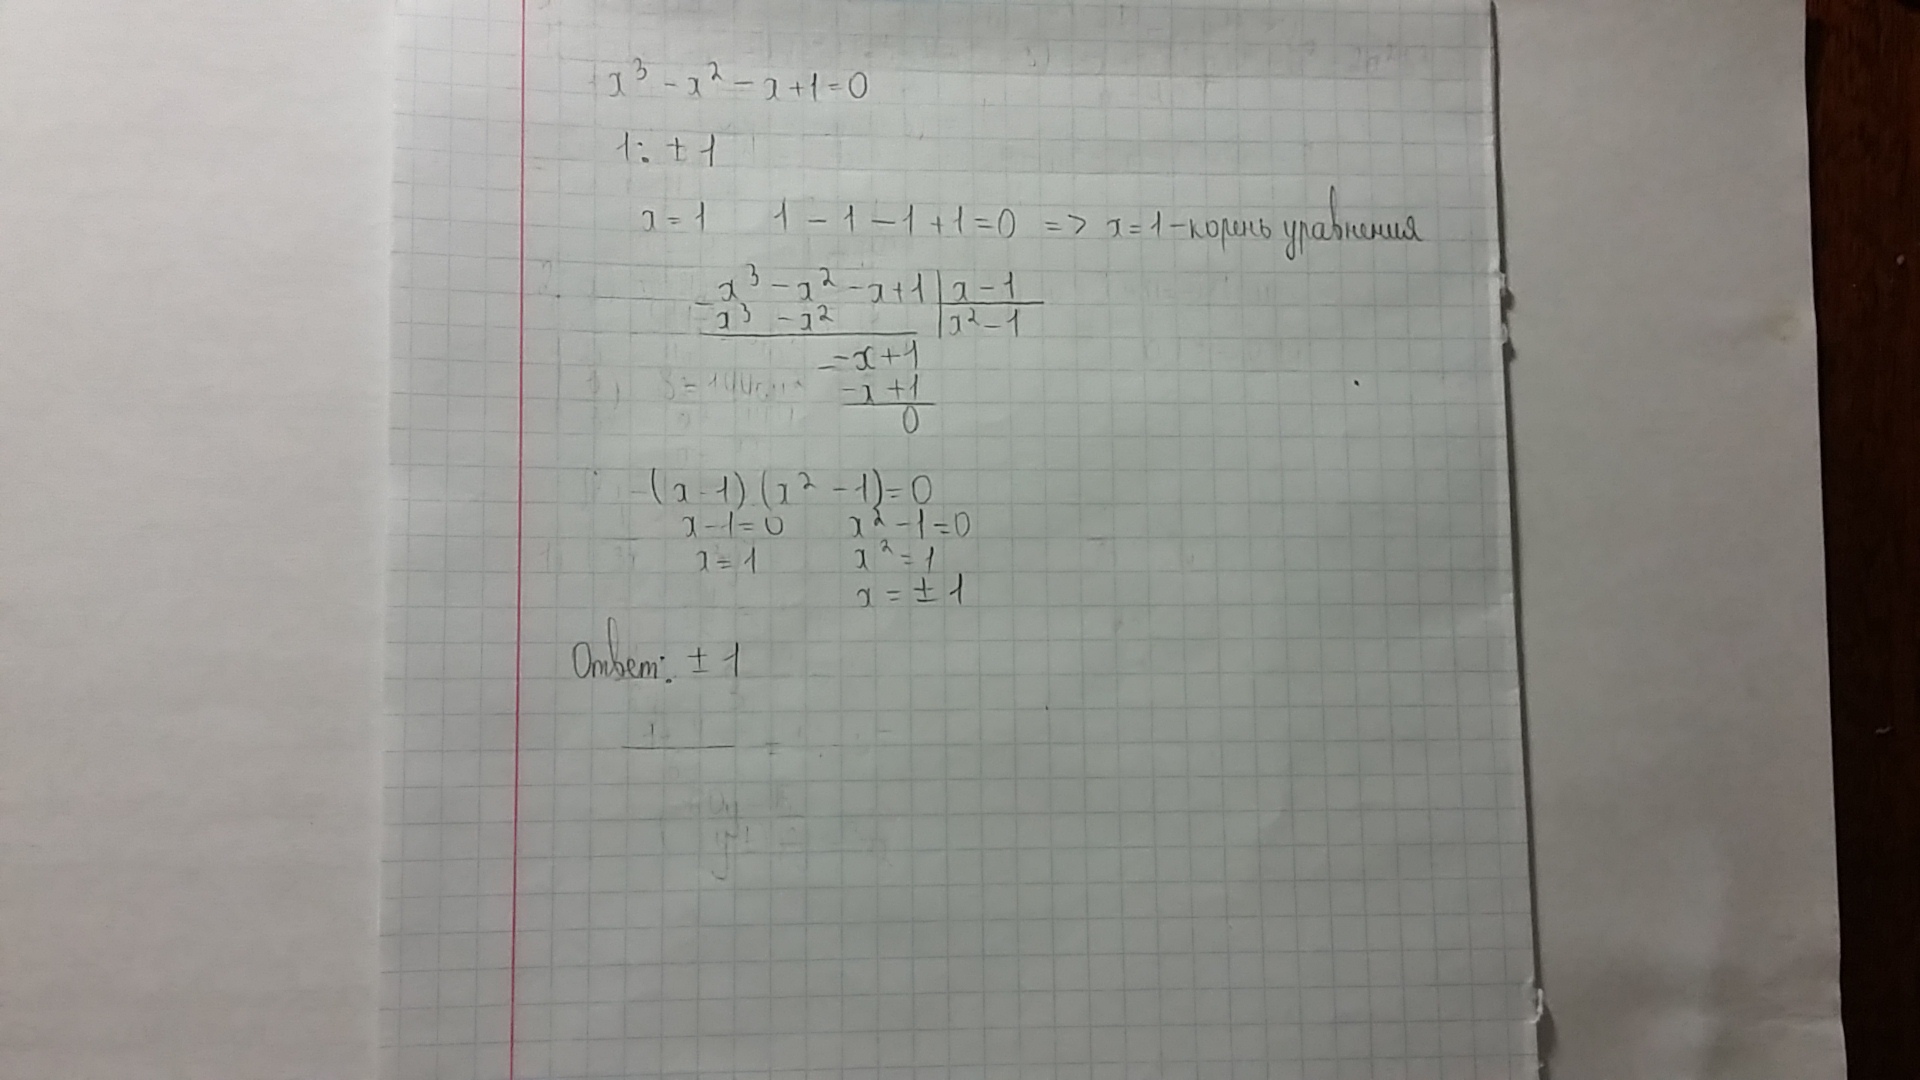 x³ - x² - x + 1 = 0
1: ± 1
x = 1 1 - 1 - 1 + 1 = 0 => x = 1 - корень уравнения
- x³ - x² - x + 1 | x - 1
x³ - x² | x² - 1
- -x + 1
-x + 1
0
(x - 1) (x² - 1) = 0
x - 1 = 0 x² - 1 = 0
x = 1 x² = 1
x = ± 1
Ответ: ± 1